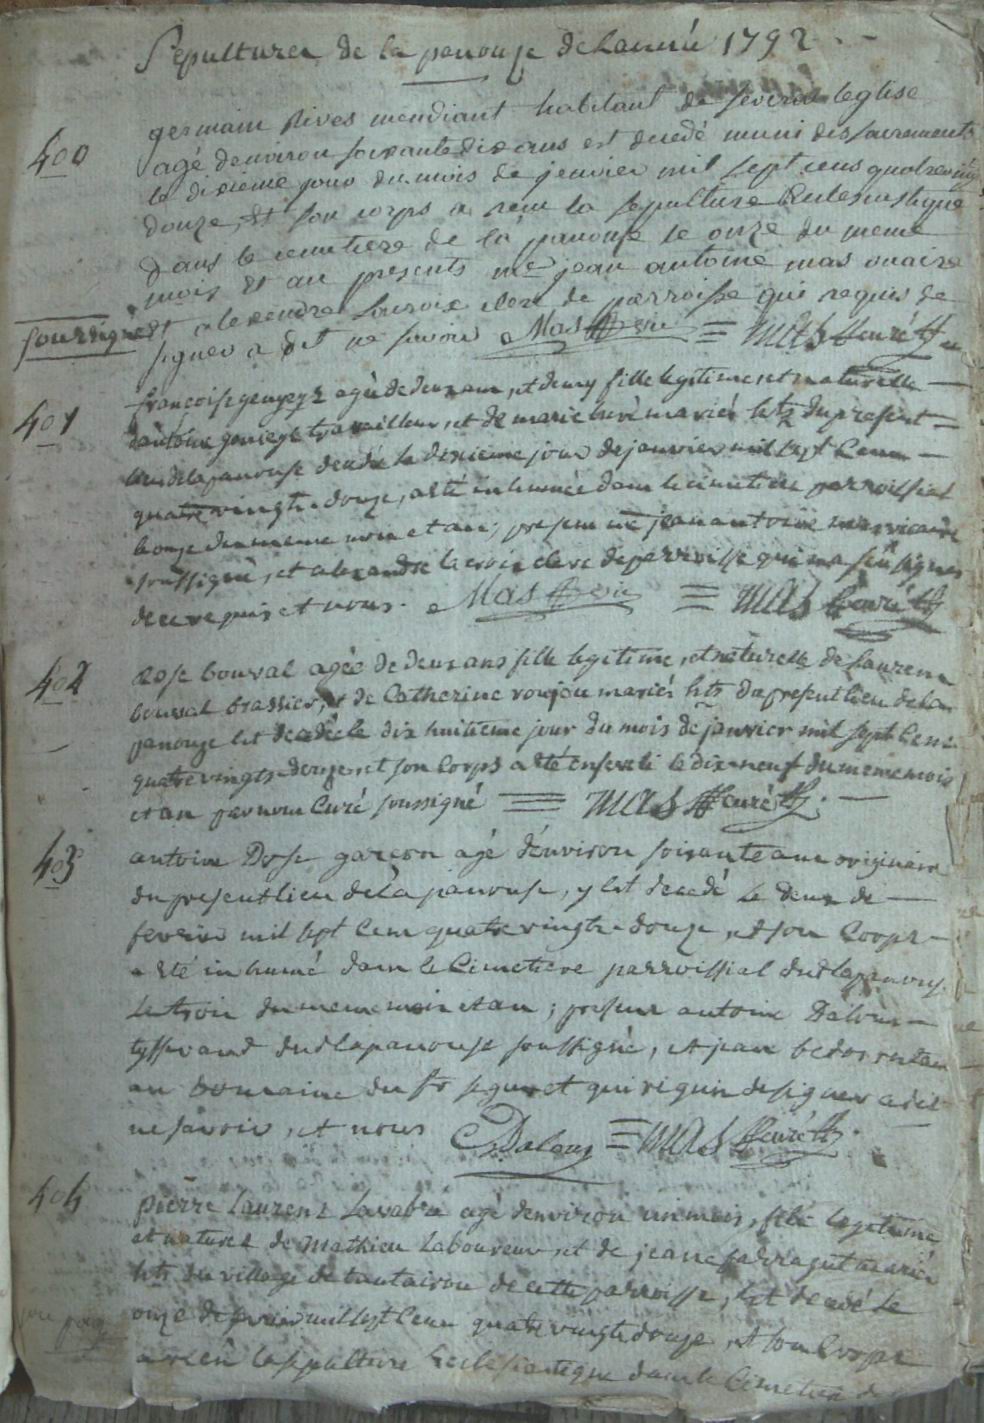 Sepultures de la panouse de Lannée 1792
400
germain Rives mendiant habitant de severac leglise
agé denviron soixante dix ans est decedé muni des sacrements
le dixieme jour du mois de janvier mil sept cens quatrevingt
douze, et son corps a reçu la sepulture Eclesiastique
dans le cemetiere de la panouse le onze du meme
mois et an presents me jean antoine mas vicaire
soussigné et alexandre Lacroix clerc de parroisse qui requis de
signer a dit ne savoir Mas vic = MAS curé
401
françoise agée de deux ans, et demy fille legitime, et naturelle
dantoine travailleur, et de marie mariés hts du present
lieu delapanouse decedée le dixieme jour de janvier mil sept Cens
quatre vingts-douze, a été inhumée dans le cimetiere parroissial
le onze du meme mois et an; presens me jean antoine mas vicaire
soussigné, et alexandre lacroix clerc de parroisse qui na sçu signer
de ce requis et nous. Mas vic = MAS Curé
402
Rose bouval agée de deux ans fille legitime, et naturelle de Laurens
bouval brassier, et de Catherine roujou mariés hts du present lieu dela
panouze est decedée le dix huitieme jour du mois de janvier mil sept Cens
quatre vingts-douze, et son Corps a été enseveli le dix-neuf du meme mois
et an par nous Curé soussigné = MAS Curé
403
antoine garçon agé d'environ soixante ans originaire
du present lieu dela panouse, y est decedé le deux de
fevrier mil sept Cens quatre vingts-douze, et son Corps
a été inhumé dans le Cimetiere parroissial dud lapanouse
le trois du meme mois et an; presens antoine Dalous
tysserand dud lapanouse soussigné, et jean bedos
au domaine du sr seguret qui requis de signer a dit
ne savoir, et nous Dalous = MAS Curé
404
pierre Laurens Lavabre agé denviron un mois, fils legitime
et naturel de Mathieu Laboureur, et de jeanne mariés
hts du village de tantairou de cette parroisse, est decedé le
onze de fevrier mil sept Cens quatre vingts douze, et son Corps
a reçu la sepulture Ecclesiastique dans le Cimetiere de